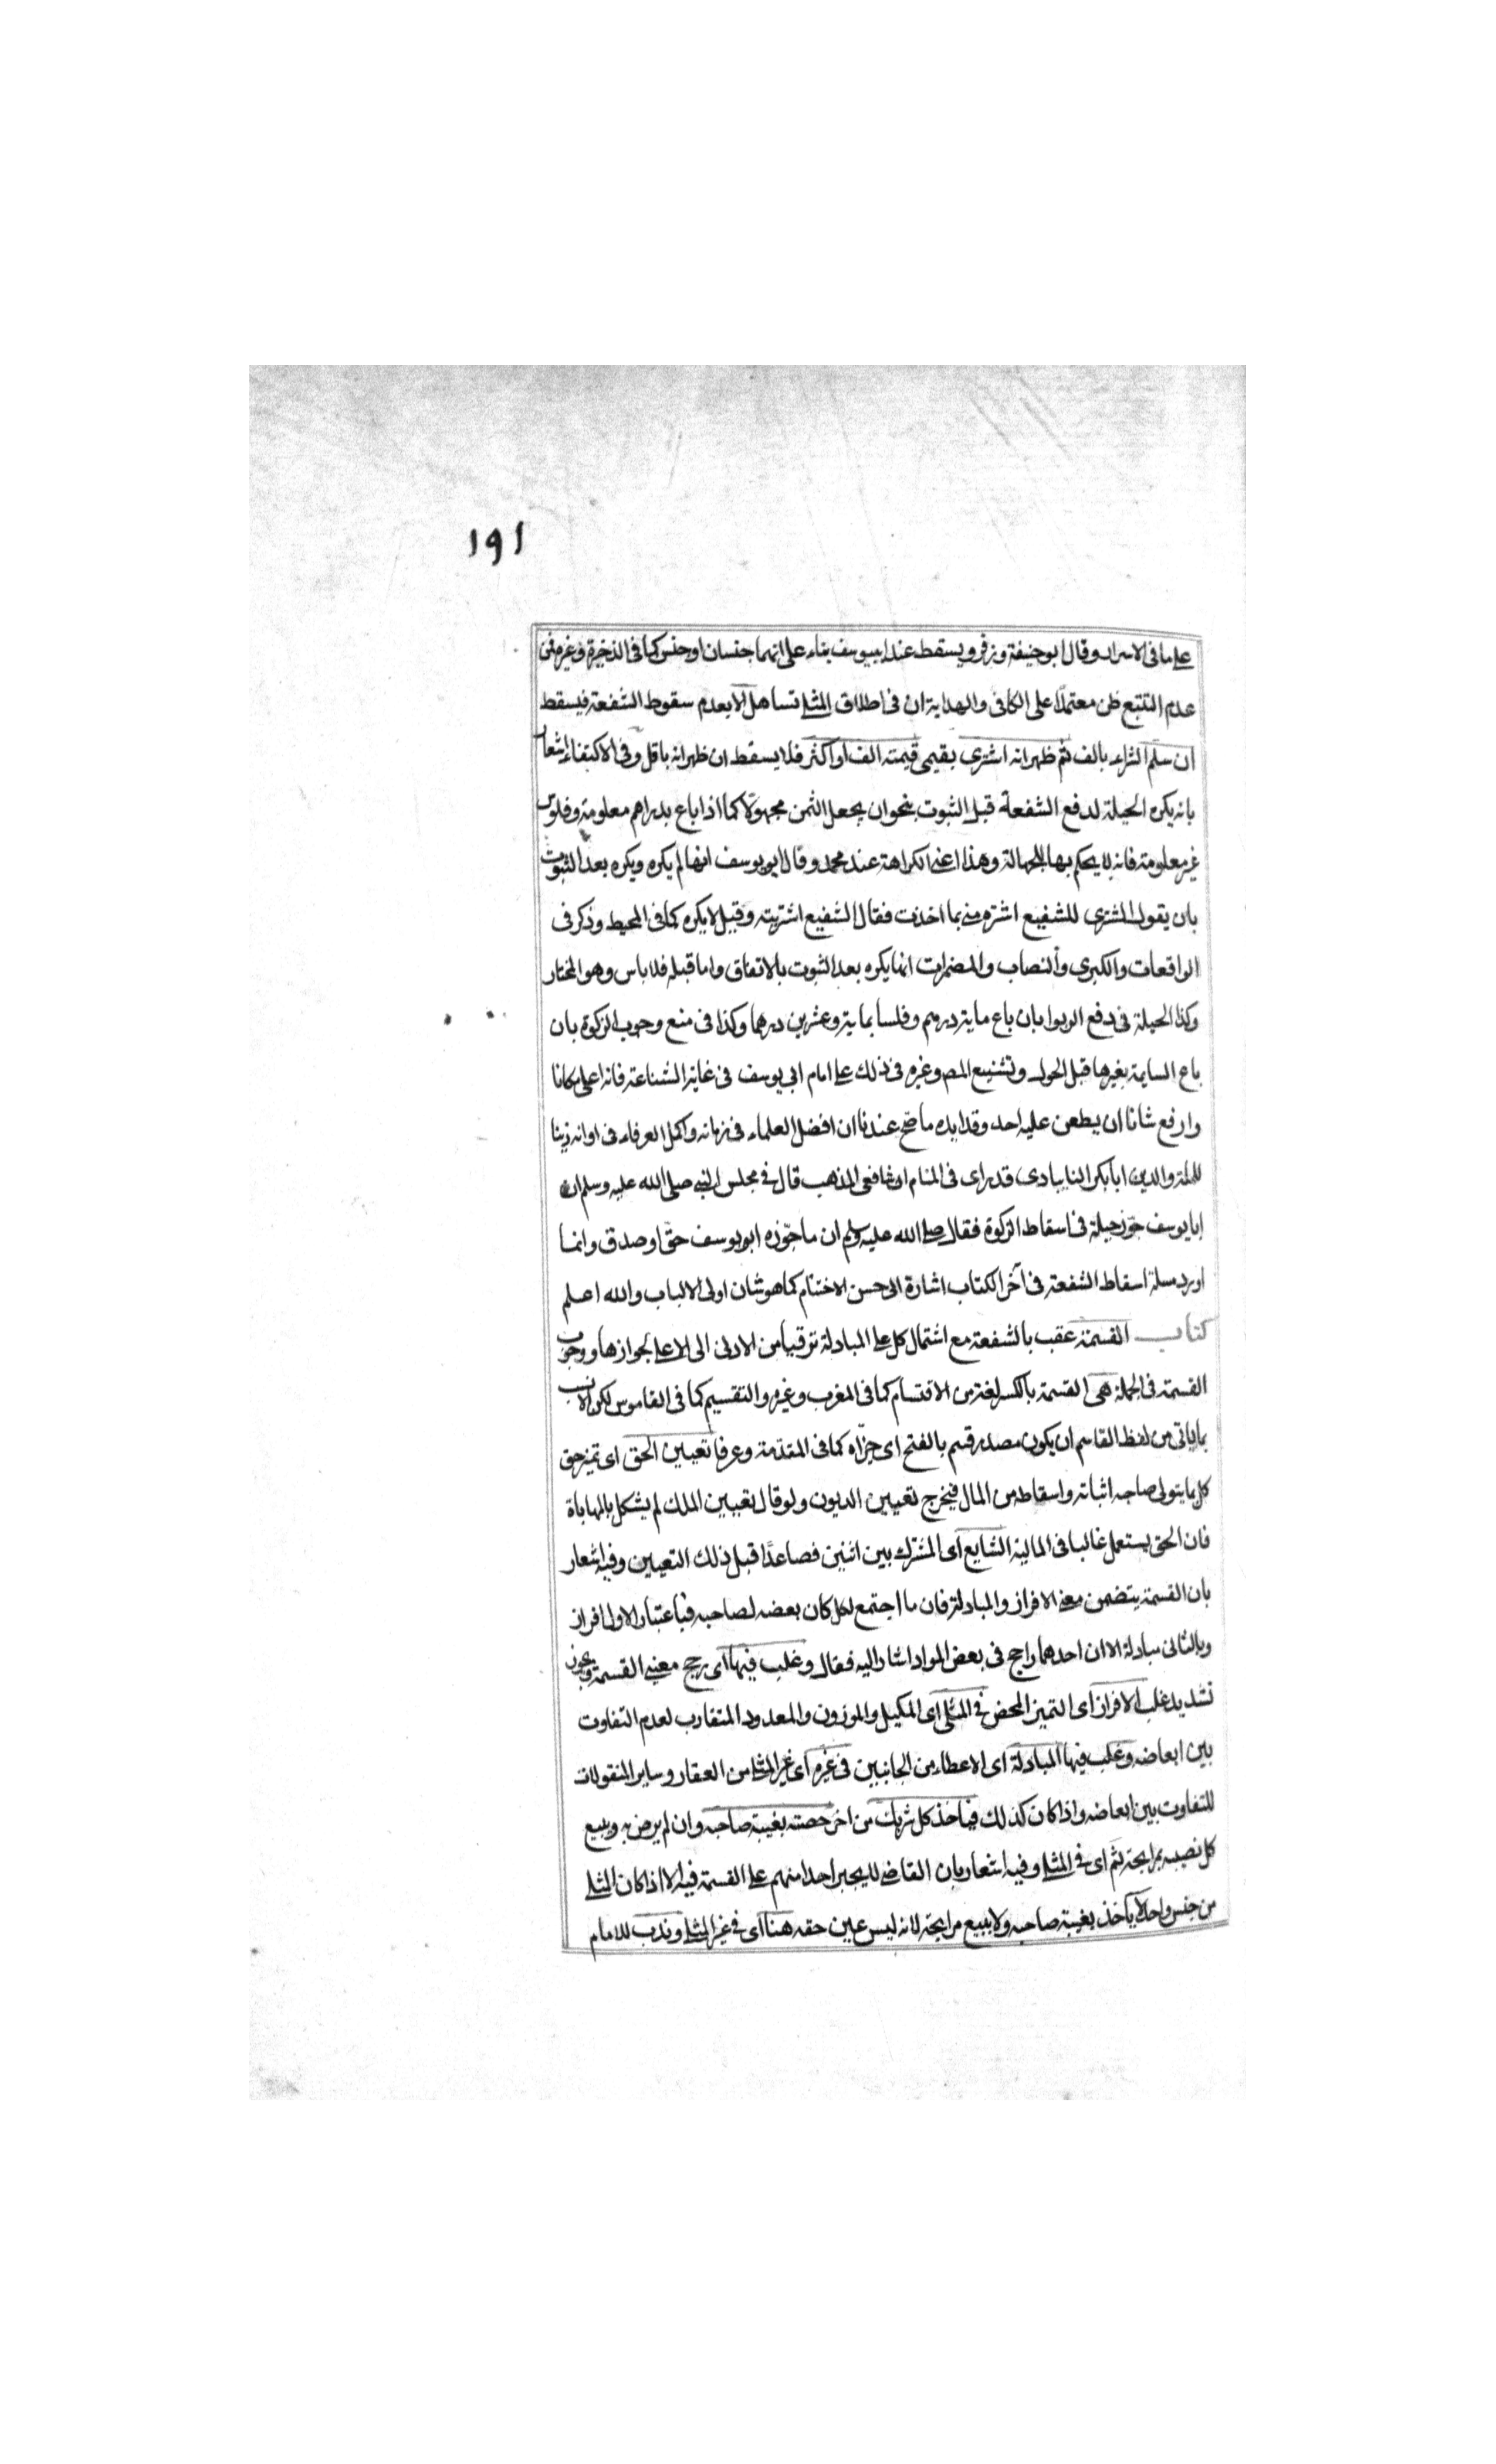 ١٩١
على ما فى الاسرار وقال ابو حنيفة وزفر ويسقط عند ابيوسف بناء على انهما جنسان او جنس كما فى الذخيرة وغيره فمن
عدم التتبع ظن معتمدًا على الكافى والهداية ان فى اطلاق المثلى تساهل الا بعدم سقوط الشفعة فيسقط
ان سلم الشراء بالف ثم ظهر انه اشترى بقيمى قيمته الف او اكثر فلا يسقط ان ظهر انه باقل وفى الاكتفاء اشعار
بانه يكره الحيلة لدفع الشفعة قبل الثبوت بنحو ان يجعل الثمن مجهولا كما اذا باع بدراهم معلومة وفلوس
غير معلومة فانه لا يحكم بها للجهالة وهذا اعنى الكراهة عند محمد وقال ابو يوسف انها لم يكره ويكره بعد الثبوت
بان يقول المشترى للشفيع اشتره منى بما اخذت فقال الشفيع اشتريته وقيل لا يكره كما فى المحيط وذكر فى
الواقعات والكبرى والنصاب والمضمرات انما يكره بعد الثبوت بالاتفاق واما قبله فلا باس وهو المختار
وكذا الحيلة فى دفع الربوا بان باع ماية درهم وفلسا بماية وعشرين درهما وكذا فى منع وجوب الزكوة بان
باع السايمة بغيرها قبل الحول وتشنيع المص وغيره فى ذلك على امام ابى يوسف فى غاية الشناعة فانه اعلى مكانا
وارفع شانا ان يطعن عليه احد وقد ايده ما صح عندنا ان افضل العلماء فى زمانه واكمل العرفاء فى اوانه زينا
للملة والدين ابا بكر التايبادى قد راى فى المنام ان شافعى المذهب قال فى مجلس النبى صلى الله عليه وسلم ان
ابا يوسف جوّز حيلة فى اسقاط الزكوة فقال صلى الله عليه وسلم ان ما جوّزه ابو يوسف حقّ او صدق وانما
اورد مسئلة اسقاط الشفعة فى آخر الكتاب اشارة الى حسن الاختتام كما هو شان اولى الالباب والله اعلم
كتاب القسمة عقب بالشفعة مع اشتمال كل على المبادلة ترقيا من الادنى الى الاعلى لجوازها ووجوب
القسمة فى الجملة هى القسمة بالكسر لغة من الاقتسام كما فى المغرب وغيره والتقسيم كما فى القاموس لكن الانسب
بما ياتى من لفظ القاسم ان يكون مصدر قسم بالفتح اى جزّاه كما فى المقدّمة وعرفا تعيين الحق اى تميز حق
كل بما يتولى صاحبه اثباته واسقاطه من المال فيخرج تعيين الديون ولو قال تعيين الملك لم يشكل بالمهاياة
فان الحق يستعمل غالبا فى المالية الشايع اى المشترك بين اثنين فصاعدًا قبل ذلك التعيين وفيه اشعار
بان القسمة يتضمن معنى الافراز والمبادلة فان ما اجتمع لكل كان بعضه لصاحبه فباعتبار الاول افراز
وبالثانى مبادلة الا ان احدهما راجح فى بعض المواد اشار اليه فقال وغلب فيها اى رجح معنى القسمة ويجوز
تشديد غلب الافراز اى التميز المحض فى المثلى اى المكيل والموزون والمعدود المتقارب لعدم التفاوت
بين ابعاضه وغلب فيها المبادلة اى الاعطاء من الجانبين فى غيره اى غير المثلى من العقار وساير المنقولات
للتفاوت بين ابعاضه واذا كان كذلك فياخذ كل شريك من اخر حصته بغيبة صاحبه وان لم يرض به ويبيع
كل نصيبه مرابحة ثم اى فى المثلى وفيه اشعار بان القاضى لا يجبر احدا منهم على القسمة فيه الا اذا كان المثلى
من جنس واحد لا ياخذ بغيبة صاحبه ولا يبيع مرابحة لانه ليس عين حقه هنا اى فى غير المثلى وندب للامام